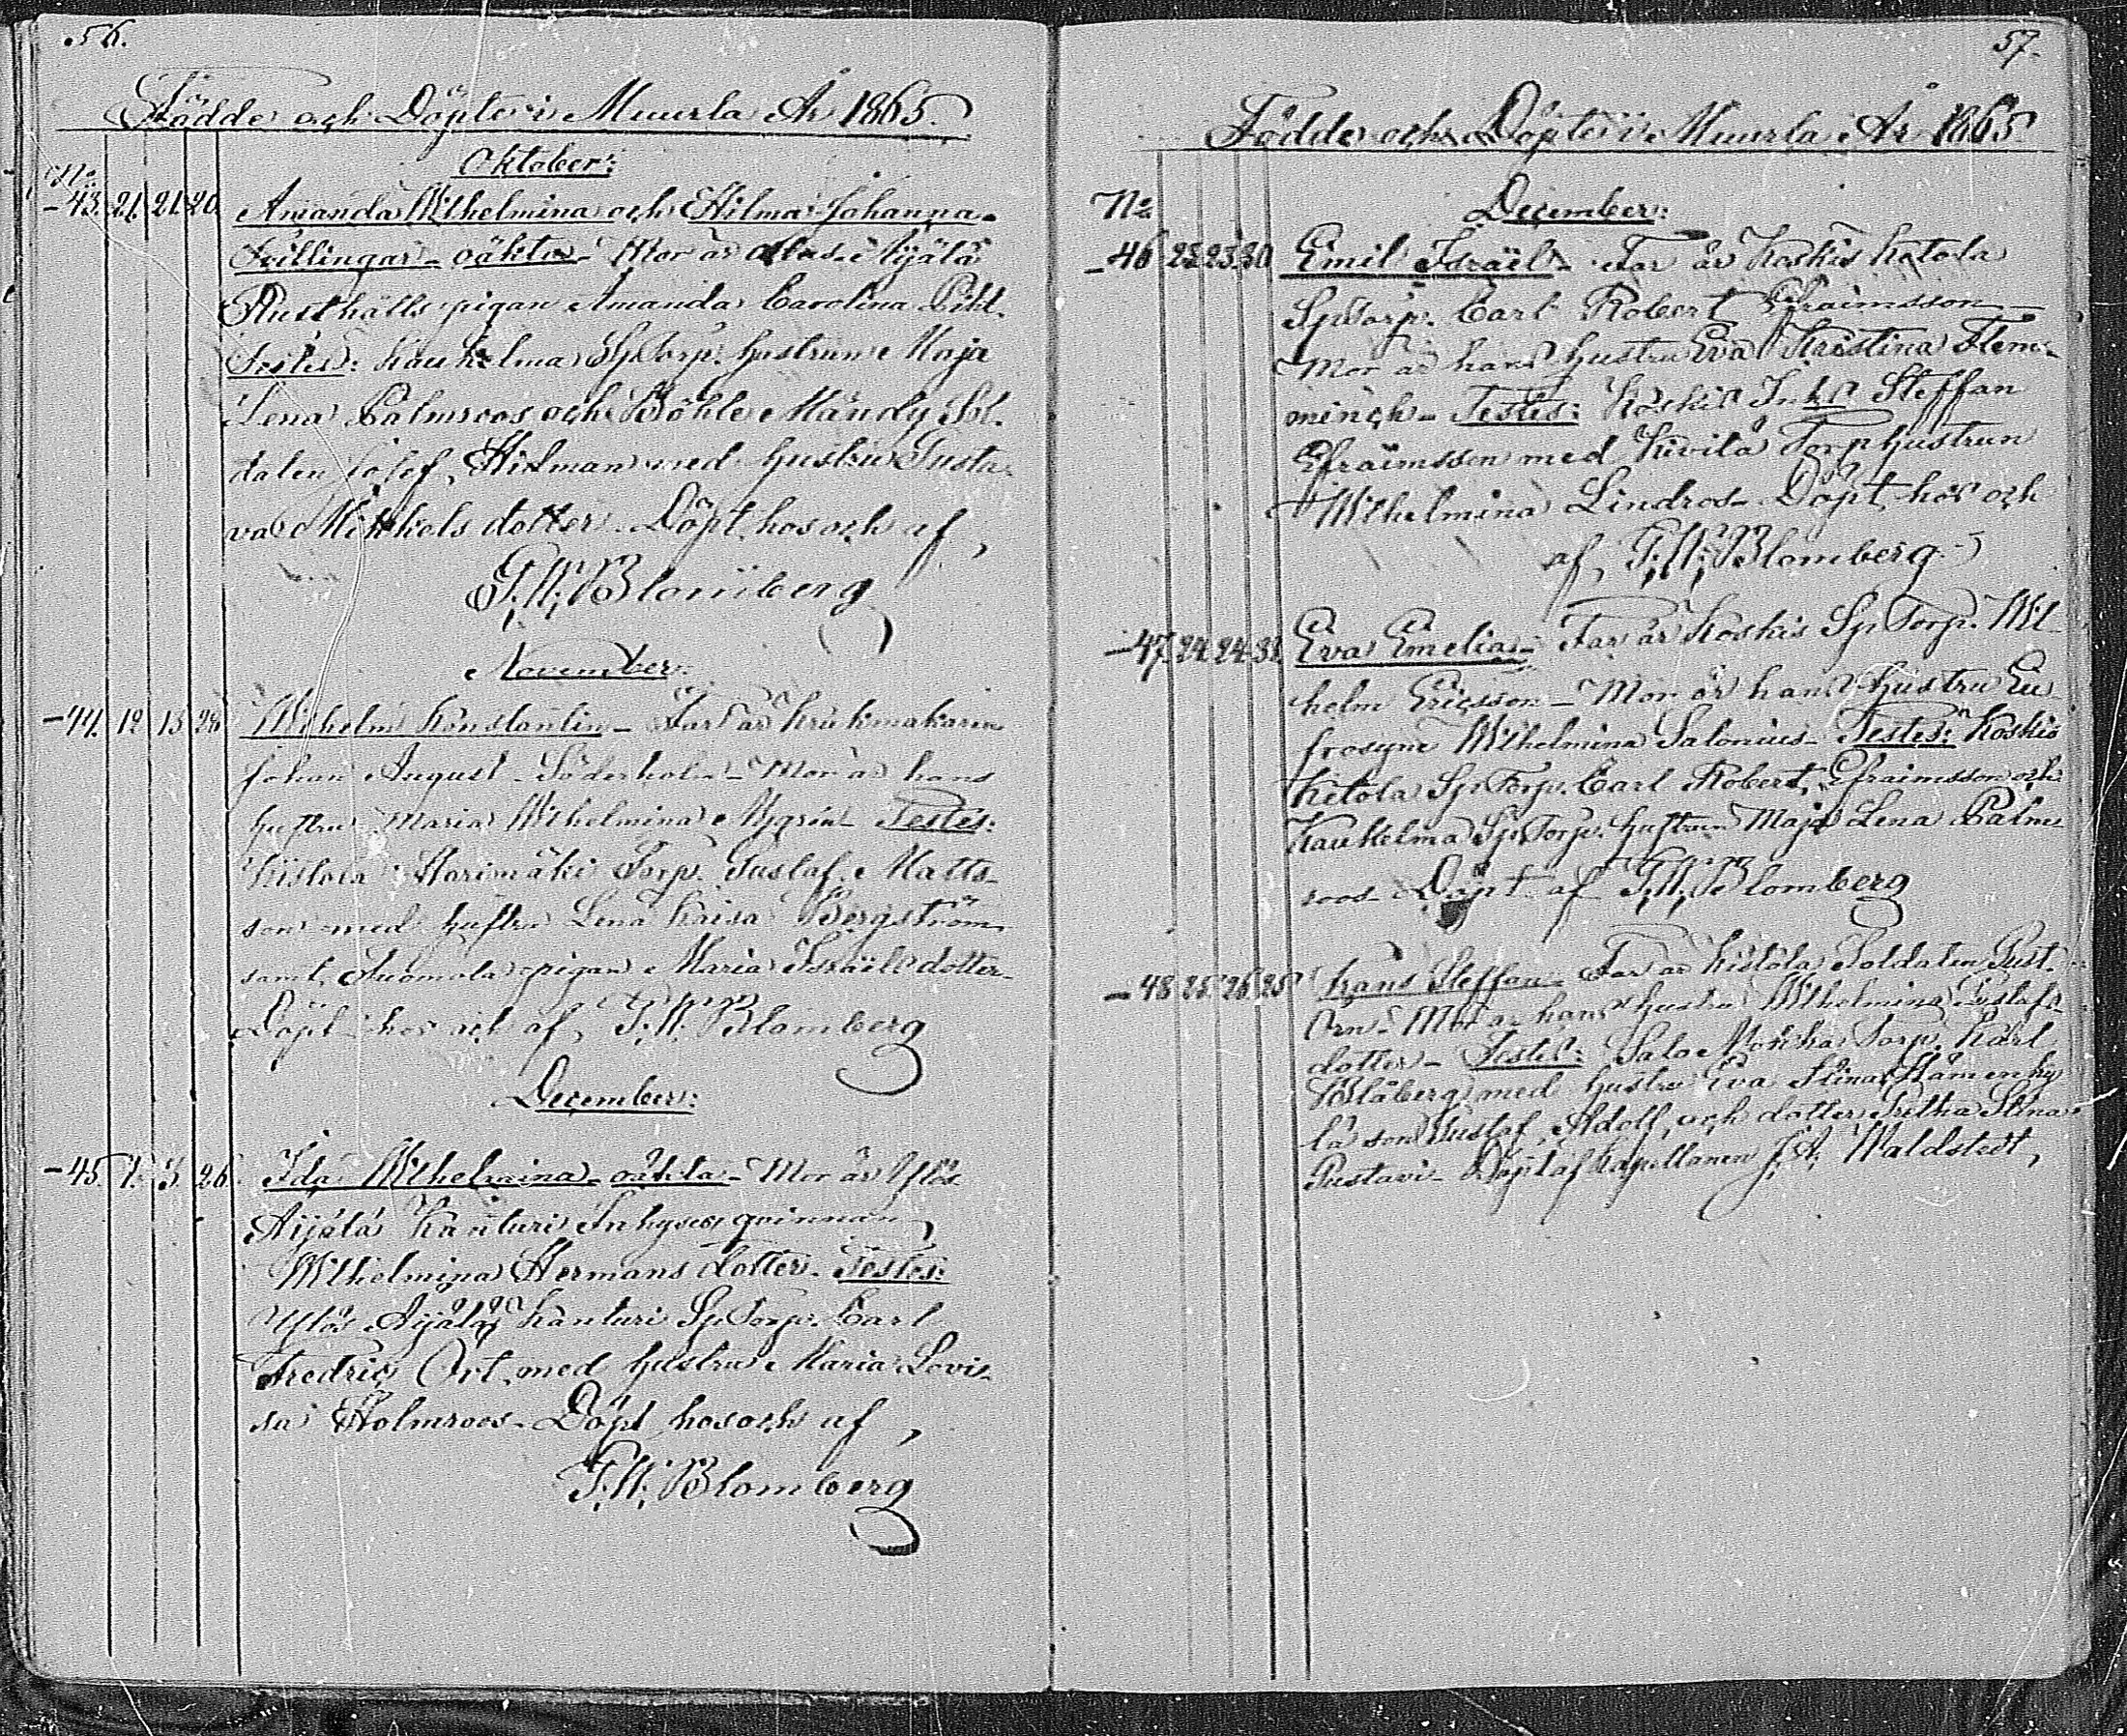 56.
Födde och Döpte i Muurla År 1865.
Oktober:
No
-43. 21. 21. 20. Amanda Wilhelmina och Hilma Johanna
Tvillingar - oäkta - Mor är Alas Äijälä
Rusthålls pigan Amanda Carolina Pihl.
Testes: Kaukelma Sp. Torp. hustrun Maja
Lena Palmroos och Böhle Mändy Sol-
daten Josef Hilman med hustru Gusta-
va Mikkels dotter. Döpt hos och af
F. W. Blomberg
November:
-44. 12. 13. 28. Wilhelm Konstantin - Far är Krukmakaren
Johan August Söderholm - Mor är hans
hustru Maria Wilhelmina Testes:
Kistola Harimäki Torp. Gustaf Matts-
son med hustru Lena Kaisa Bergström
samt Suomola pigan Maria Israëls dotter-
Döpt hos och af F. W. Blomberg
December:
-45. 1. 3. 26. Ida Wilhelmina - oäkta - Mor är Ylös
Äijälä Känturi Inhyses qvinnan
Wilhelmina Hermans dotter. Testes:
Ylös Äijälä Känturi Sp. Torp. Carl
Fredric Ort med hustru Maria Lovi-
sa Holmroos - Döpt hos och af
F. W. Blomberg
57.
Födde och Döpte i Muurla År 1865
No December:
-46 23. 23. 30 Emil Israël - Far är Koskis Ketola
Sp. Torp. Carl Robert Efraimsson -
Mor är hans hustru Eva Kristina Flem-
minch - Testes: Koskis Inhs Steffan
Efraimsson med Kivilä Torp hustrun
Wilhelmina Lindros - Döpt hos och
af F. W. Blomberg
-47. 24. 24. 32. Eva Emelia - Far är Koskis Sp. Torp. Wil-
helm Ericsson - Mor är hans hustru Eu-
frosyne Wilhelmina Salonius - Testes: Koskis
Ketola Sp. Torp. Carl Robert Efraimsson och
Kaukelma Sp. Torp. hustrun Maja Lena Palm-
roos - Döpt af F. W. Blomberg
-48. 25. 26. 25 Frans Steffan - Far är Kistola Soldaten Gust.
Orn - Mor är hans hustru Wilhelmina Gustafs-
dotter - Testes: Salo Torp. Karl
Blåberg med hustru Eva Stina, Hämenky-
lä son Gustaf Adolf och dotter Fretha Stina
Gustavi - Döpt af Kapellanen J. A. Waldstedt